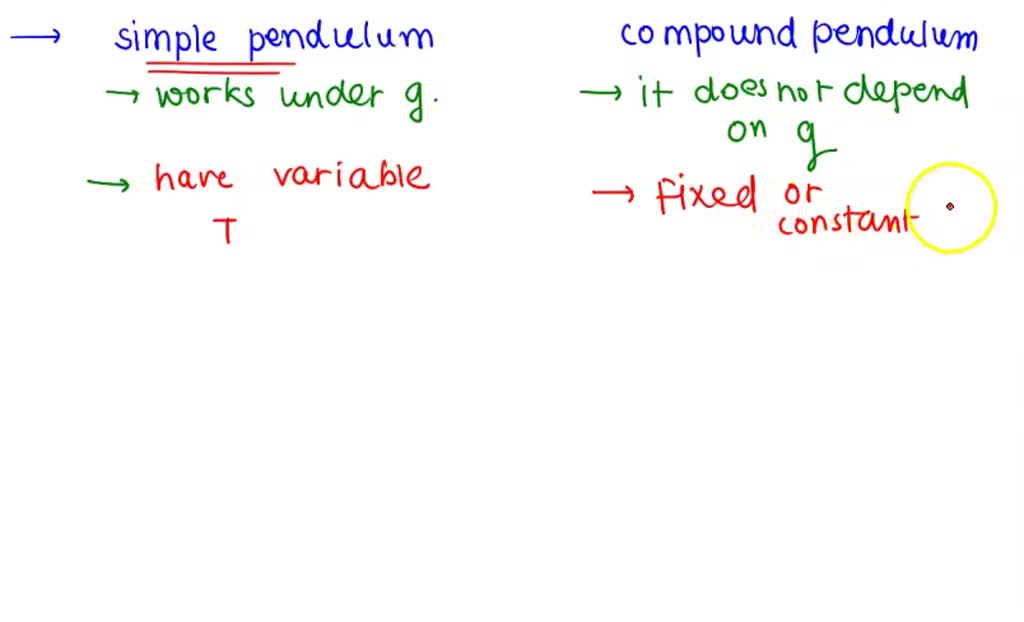 → simple pendulum
→ works under g.
→ have variable
T
compound pendulum
→ it does not depend
on g
→ Fixed or
constant